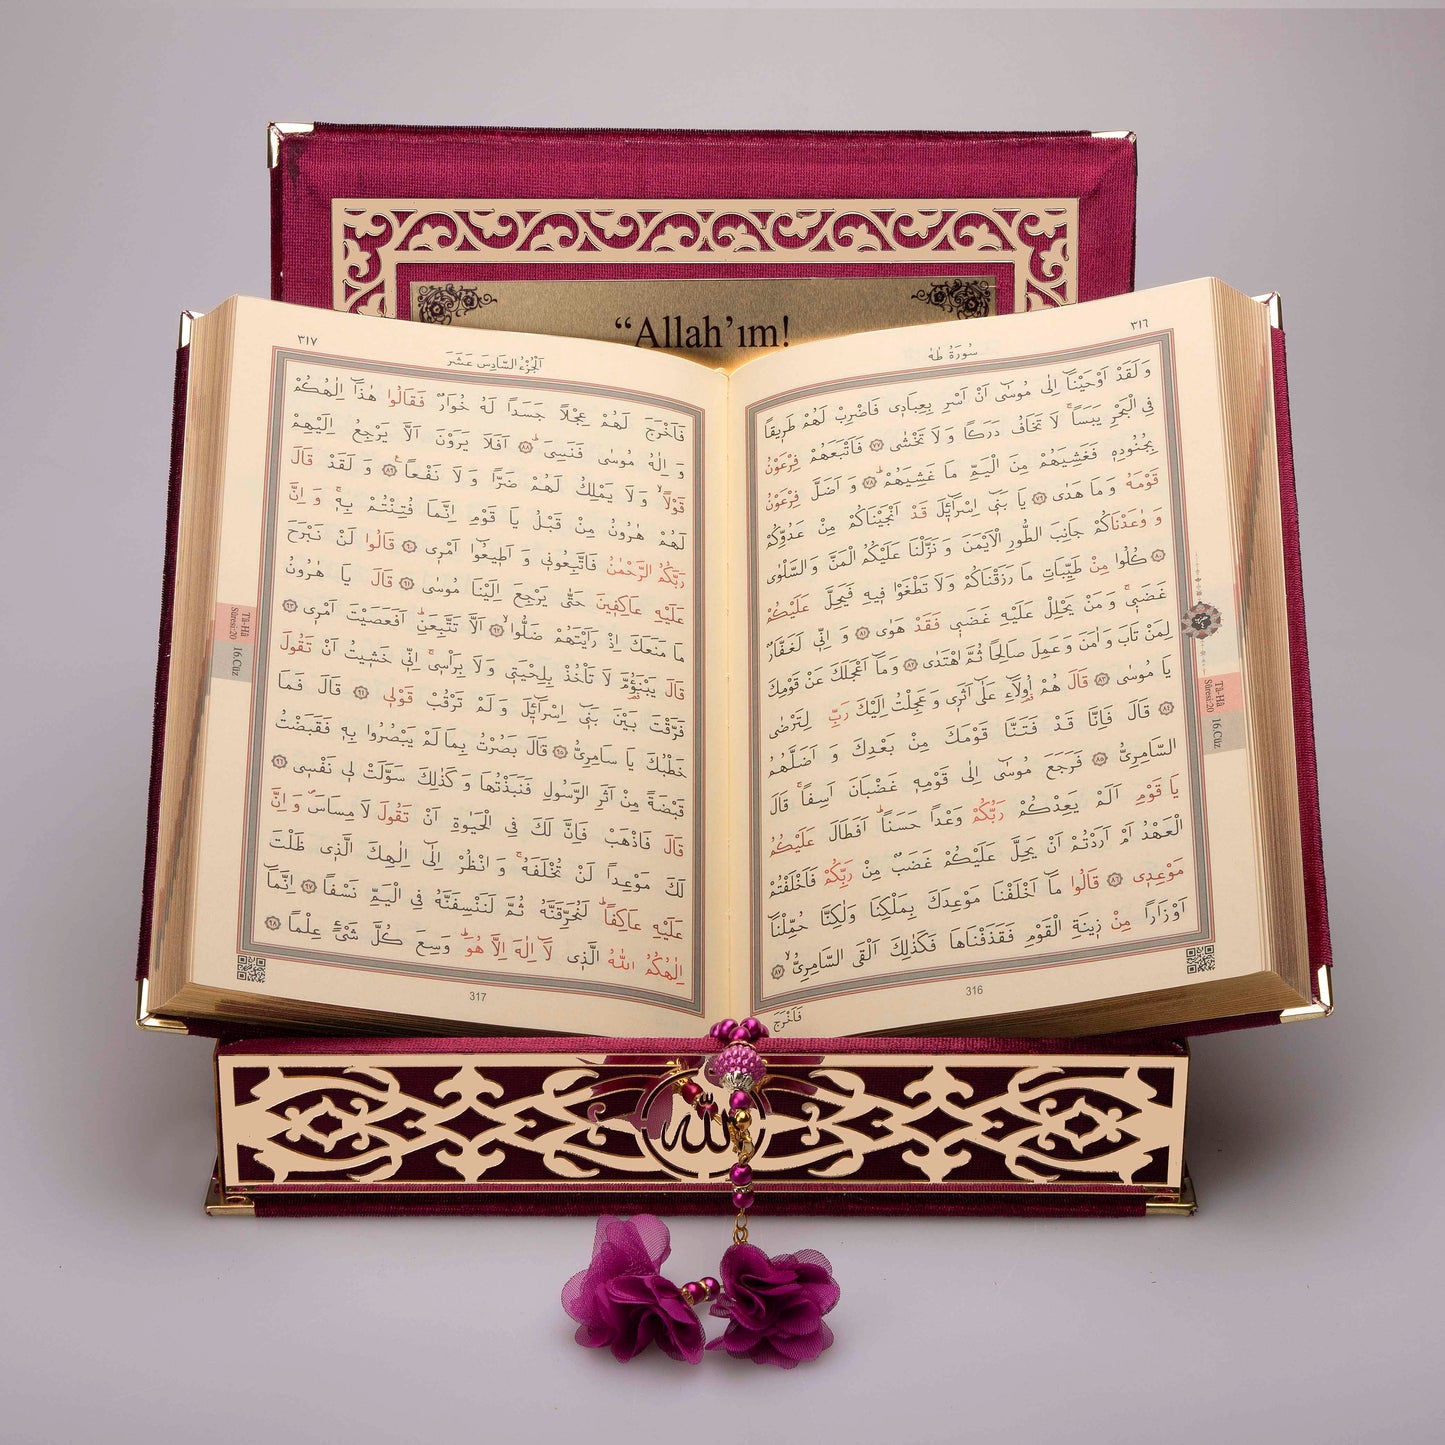 “Allah’ım!
٣١٦
سُورَةُ طٰهٰ
وَلَقَدْ اَوْحَيْنَٓا اِلٰى مُوسٰٓى اَنْ اَسْرِ بِعِبَاد۪ى فَاضْرِبْ لَهُمْ طَر۪يقاً
فِي الْبَحْرِ يَبَساًۙ لَا تَخَافُ دَرَكاً وَلَا تَخْشٰى ٧٧ فَاَتْبَعَهُمْ فِرْعَوْنُ
بِجُنُودِه۪ فَغَشِيَهُمْ مِنَ الْيَمِّ مَا غَشِيَهُمْۜ ٧٨ وَاَضَلَّ فِرْعَوْنُ
قَوْمَهُ وَمَا هَدٰى ٧٩ يَا بَن۪ٓى اِسْرَٓائ۪لَ قَدْ اَنْجَيْنَاكُمْ مِنْ عَدُوِّكُمْ
وَوٰعَدْنَاكُمْ جَانِبَ الطُّورِ الْاَيْمَنَ وَنَزَّلْنَا عَلَيْكُمُ الْمَنَّ وَالسَّلْوٰى
٨٠ كُلُوا مِنْ طَيِّبَاتِ مَا رَزَقْنَاكُمْ وَلَا تَطْغَوْا ف۪يهِ فَيَحِلَّ عَلَيْكُمْ
غَضَب۪ىۚ وَمَنْ يَحْلِلْ عَلَيْهِ غَضَب۪ى فَقَدْ هَوٰى ٨١ وَاِنّ۪ى لَغَفَّارٌ
لِمَنْ تَابَ وَاٰمَنَ وَعَمِلَ صَالِحاً ثُمَّ اهْتَدٰى ٨٢ وَمَٓا اَعْجَلَكَ عَنْ قَوْمِكَ
يَا مُوسٰى ٨٣ قَالَ هُمْ اُو۬لَٓاءِ عَلٰٓى اَثَر۪ى وَعَجِلْتُ اِلَيْكَ رَبِّ لِتَرْضٰى
٨٤ قَالَ فَاِنَّا قَدْ فَتَنَّا قَوْمَكَ مِنْ بَعْدِكَ وَاَضَلَّهُمُ
السَّامِرِىُّ ٨٥ فَرَجَعَ مُوسٰٓى اِلٰى قَوْمِه۪ غَضْبَانَ اَسِفاًۚ قَالَ
يَا قَوْمِ اَلَمْ يَعِدْكُمْ رَبُّكُمْ وَعْداً حَسَناًۜ اَفَطَالَ عَلَيْكُمُ
الْعَهْدُ اَمْ اَرَدْتُمْ اَنْ يَحِلَّ عَلَيْكُمْ غَضَبٌ مِنْ رَبِّكُمْ فَاَخْلَفْتُمْ
مَوْعِد۪ى ٨٦ قَالُوا مَٓا اَخْلَفْنَا مَوْعِدَكَ بِمَلْكِنَا وَلٰكِنَّا حُمِّلْنَٓا
اَوْزَاراً مِنْ ز۪ينَةِ الْقَوْمِ فَقَذَفْنَاهَا فَكَذٰلِكَ اَلْقَى السَّامِرِىُّۙ ٨٧
316
فَاَخْرَجَ
Tâ-Hâ
Sûresi:20
16.Cüz
٣١٧
اَلْجُزْءُ السَّادِسَ عَشَرَ
فَاَخْرَجَ لَهُمْ عِجْلاً جَسَداً لَهُ خُوَارٌ فَقَالُوا هٰذَٓا اِلٰهُكُمْ
وَاِلٰهُ مُوسٰى فَنَسِىَۜ ٨٨ اَفَلَا يَرَوْنَ اَلَّا يَرْجِعُ اِلَيْهِمْ
قَوْلاًۙ وَلَا يَمْلِكُ لَهُمْ ضَراًّ وَلَا نَفْعاً۟ ٨٩ وَلَقَدْ قَالَ
لَهُمْ هٰرُونُ مِنْ قَبْلُ يَا قَوْمِ اِنَّمَا فُتِنْتُمْ بِه۪ۚ وَاِنَّ
رَبَّكُمُ الرَّحْمٰنُ فَاتَّبِعُون۪ى وَاَط۪يعُٓوا اَمْر۪ى ٩٠ قَالُوا لَنْ نَبْرَحَ
عَلَيْهِ عَاكِف۪ينَ حَتّٰى يَرْجِعَ اِلَيْنَا مُوسٰى ٩١ قَالَ يَا هٰرُونُ
مَا مَنَعَكَ اِذْ رَاَيْتَهُمْ ضَلُّٓواۙ ٩٢ اَلَّا تَتَّبِعَنِۜ اَفَعَصَيْتَ اَمْر۪ى ٩٣
قَالَ يَبْنَؤُ۬مَّ لَا تَأْخُذْ بِلِحْيَت۪ى وَلَا بِرَأْس۪ىۚ اِنّ۪ى خَش۪يتُ اَنْ تَقُولَ
فَرَّقْتَ بَيْنَ بَن۪ٓى اِسْرَٓائ۪لَ وَلَمْ تَرْقُبْ قَوْل۪ى ٩٤ قَالَ فَمَا
خَطْبُكَ يَا سَامِرِىُّ ٩٥ قَالَ بَصُرْتُ بِمَا لَمْ يَبْصُرُوا بِه۪ فَقَبَضْتُ
قَبْضَةً مِنْ اَثَرِ الرَّسُولِ فَنَبَذْتُهَا وَكَذٰلِكَ سَوَّلَتْ ل۪ى نَفْس۪ى ٩٦
قَالَ فَاذْهَبْ فَاِنَّ لَكَ فِي الْحَيٰوةِ اَنْ تَقُولَ لَا مِسَاسَۖ وَاِنَّ
لَكَ مَوْعِداً لَنْ تُخْلَفَهُۚ وَانْظُرْ اِلٰٓى اِلٰهِكَ الَّذ۪ى ظَلْتَ
عَلَيْهِ عَاكِفاًۜ لَنُحَرِّقَنَّهُ ثُمَّ لَنَنْسِفَنَّهُ فِي الْيَمِّ نَسْفاً ٩٧ اِنَّمَٓا
اِلٰهُكُمُ اللّٰهُ الَّذ۪ى لَٓا اِلٰهَ اِلَّا هُوَۜ وَسِعَ كُلَّ شَىْءٍ عِلْماً ٩٨
317
Tâ-Hâ
Sûresi:20
16.Cüz
الله